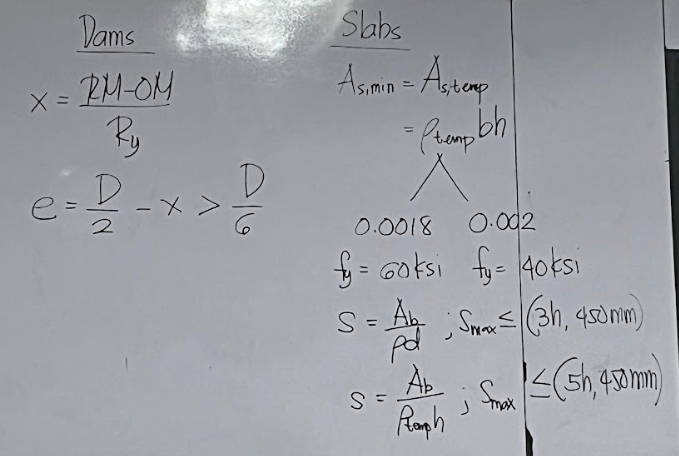 Dams
x = RM-OM / Ry
e = D/2 - x > D/6
Slabs
As,min = As,temp
= ρtemp bh
0.0018 0.002
fy = 60ksi fy = 40ksi
S = Ab / ρd ; Smax ≤ (3h, 450mm)
S = Ab / ρtemp h ; Smax ≤ (5h, 450mm)